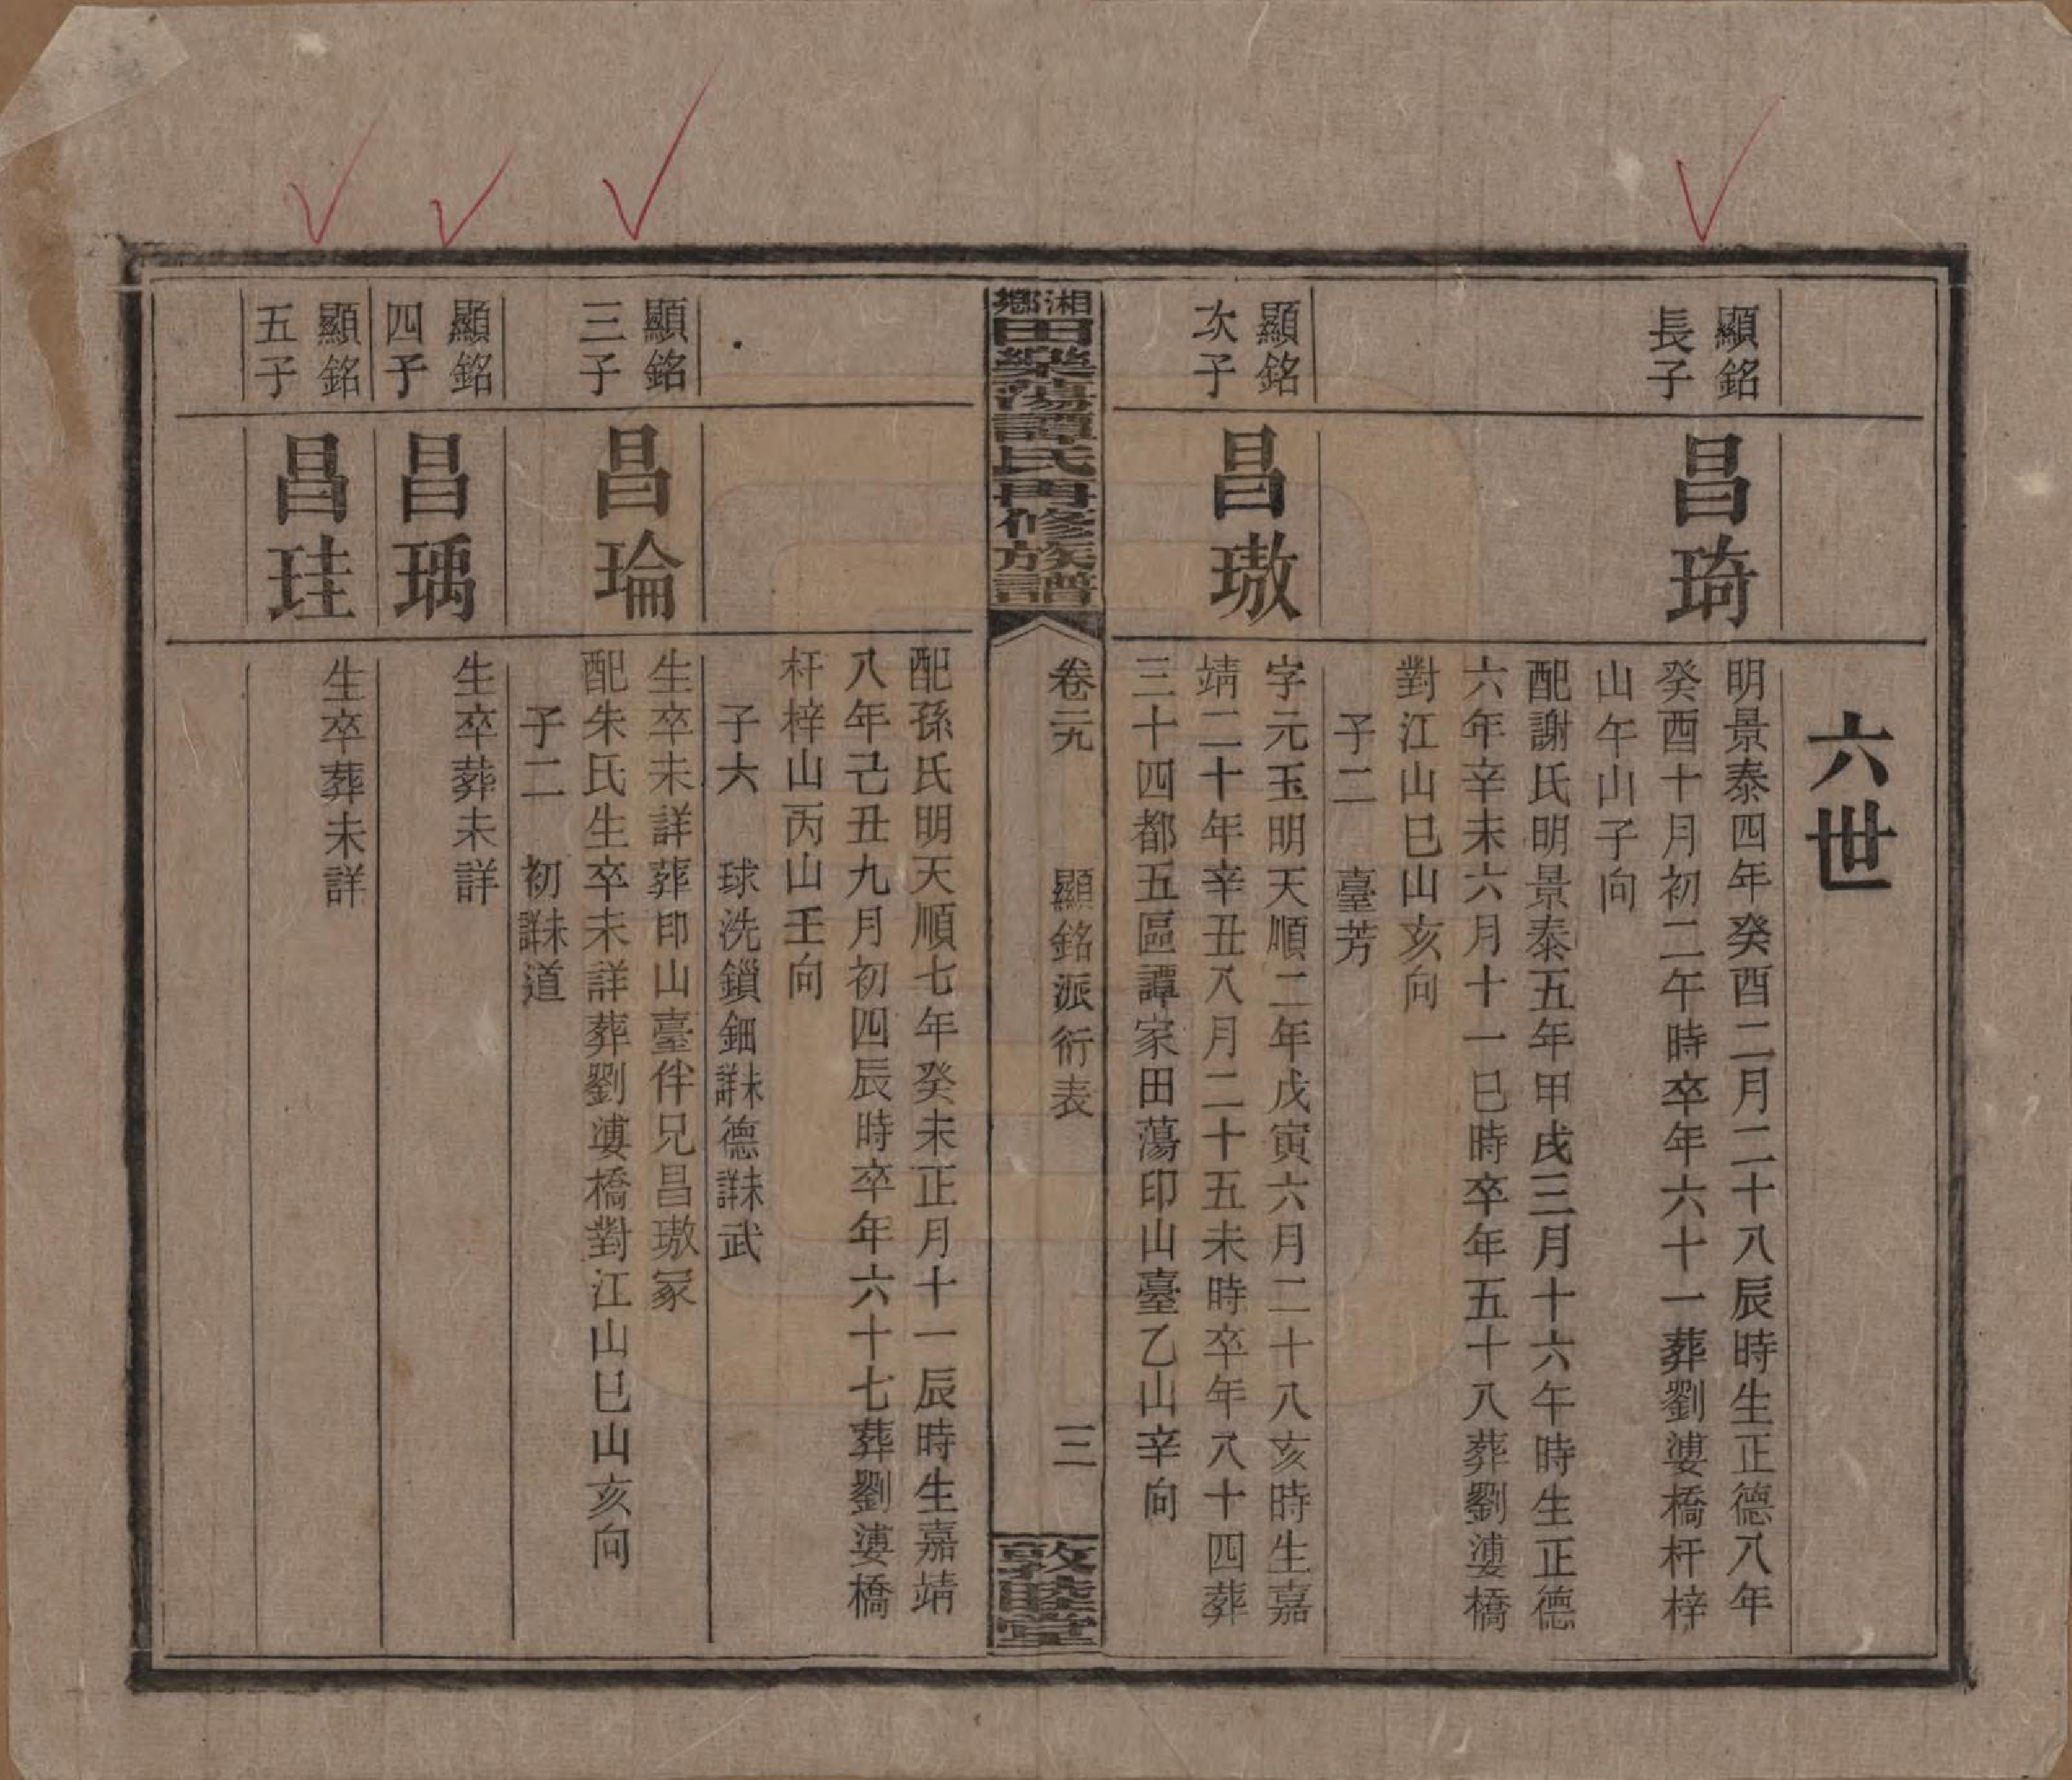 六世
顯銘
長子
昌琦
明景泰四年癸酉二月二十八辰時生正德八年
癸酉十月初二午時卒年六十一葬劉婁橋杆梓
山午山子向
配謝氏明景泰五年甲戌三月十六午時生正德
六年辛未六月十一巳時卒年五十八葬劉漊橋
對江山巳山亥向
子二　臺芳
顯銘
次子
昌璈
字元玉明天順二年戊寅六月二十八亥時生嘉
靖二十年辛丑八月二十五未時卒年八十四葬
三十四都五區譚家田蕩印山臺乙山辛向
湘鄉田樂蕩譚氏再修族譜
卷二九
顯銘派衍表
三
敦睦堂
配孫氏明天順七年癸未正月十一辰時生嘉靖
八年己丑九月初四辰時卒年六十七葬劉漊橋
杆梓山丙山壬向
子六　球洗鎖鈿未詳德未詳武
顯銘
三子
昌瑜
生卒未詳葬印山臺伴兄昌璈冢
配朱氏生卒未詳葬劉漊橋對江山巳山亥向
子二　初未詳道
顯銘
四子
昌瑀
生卒葬未詳
顯銘
五子
昌珪
生卒葬未詳